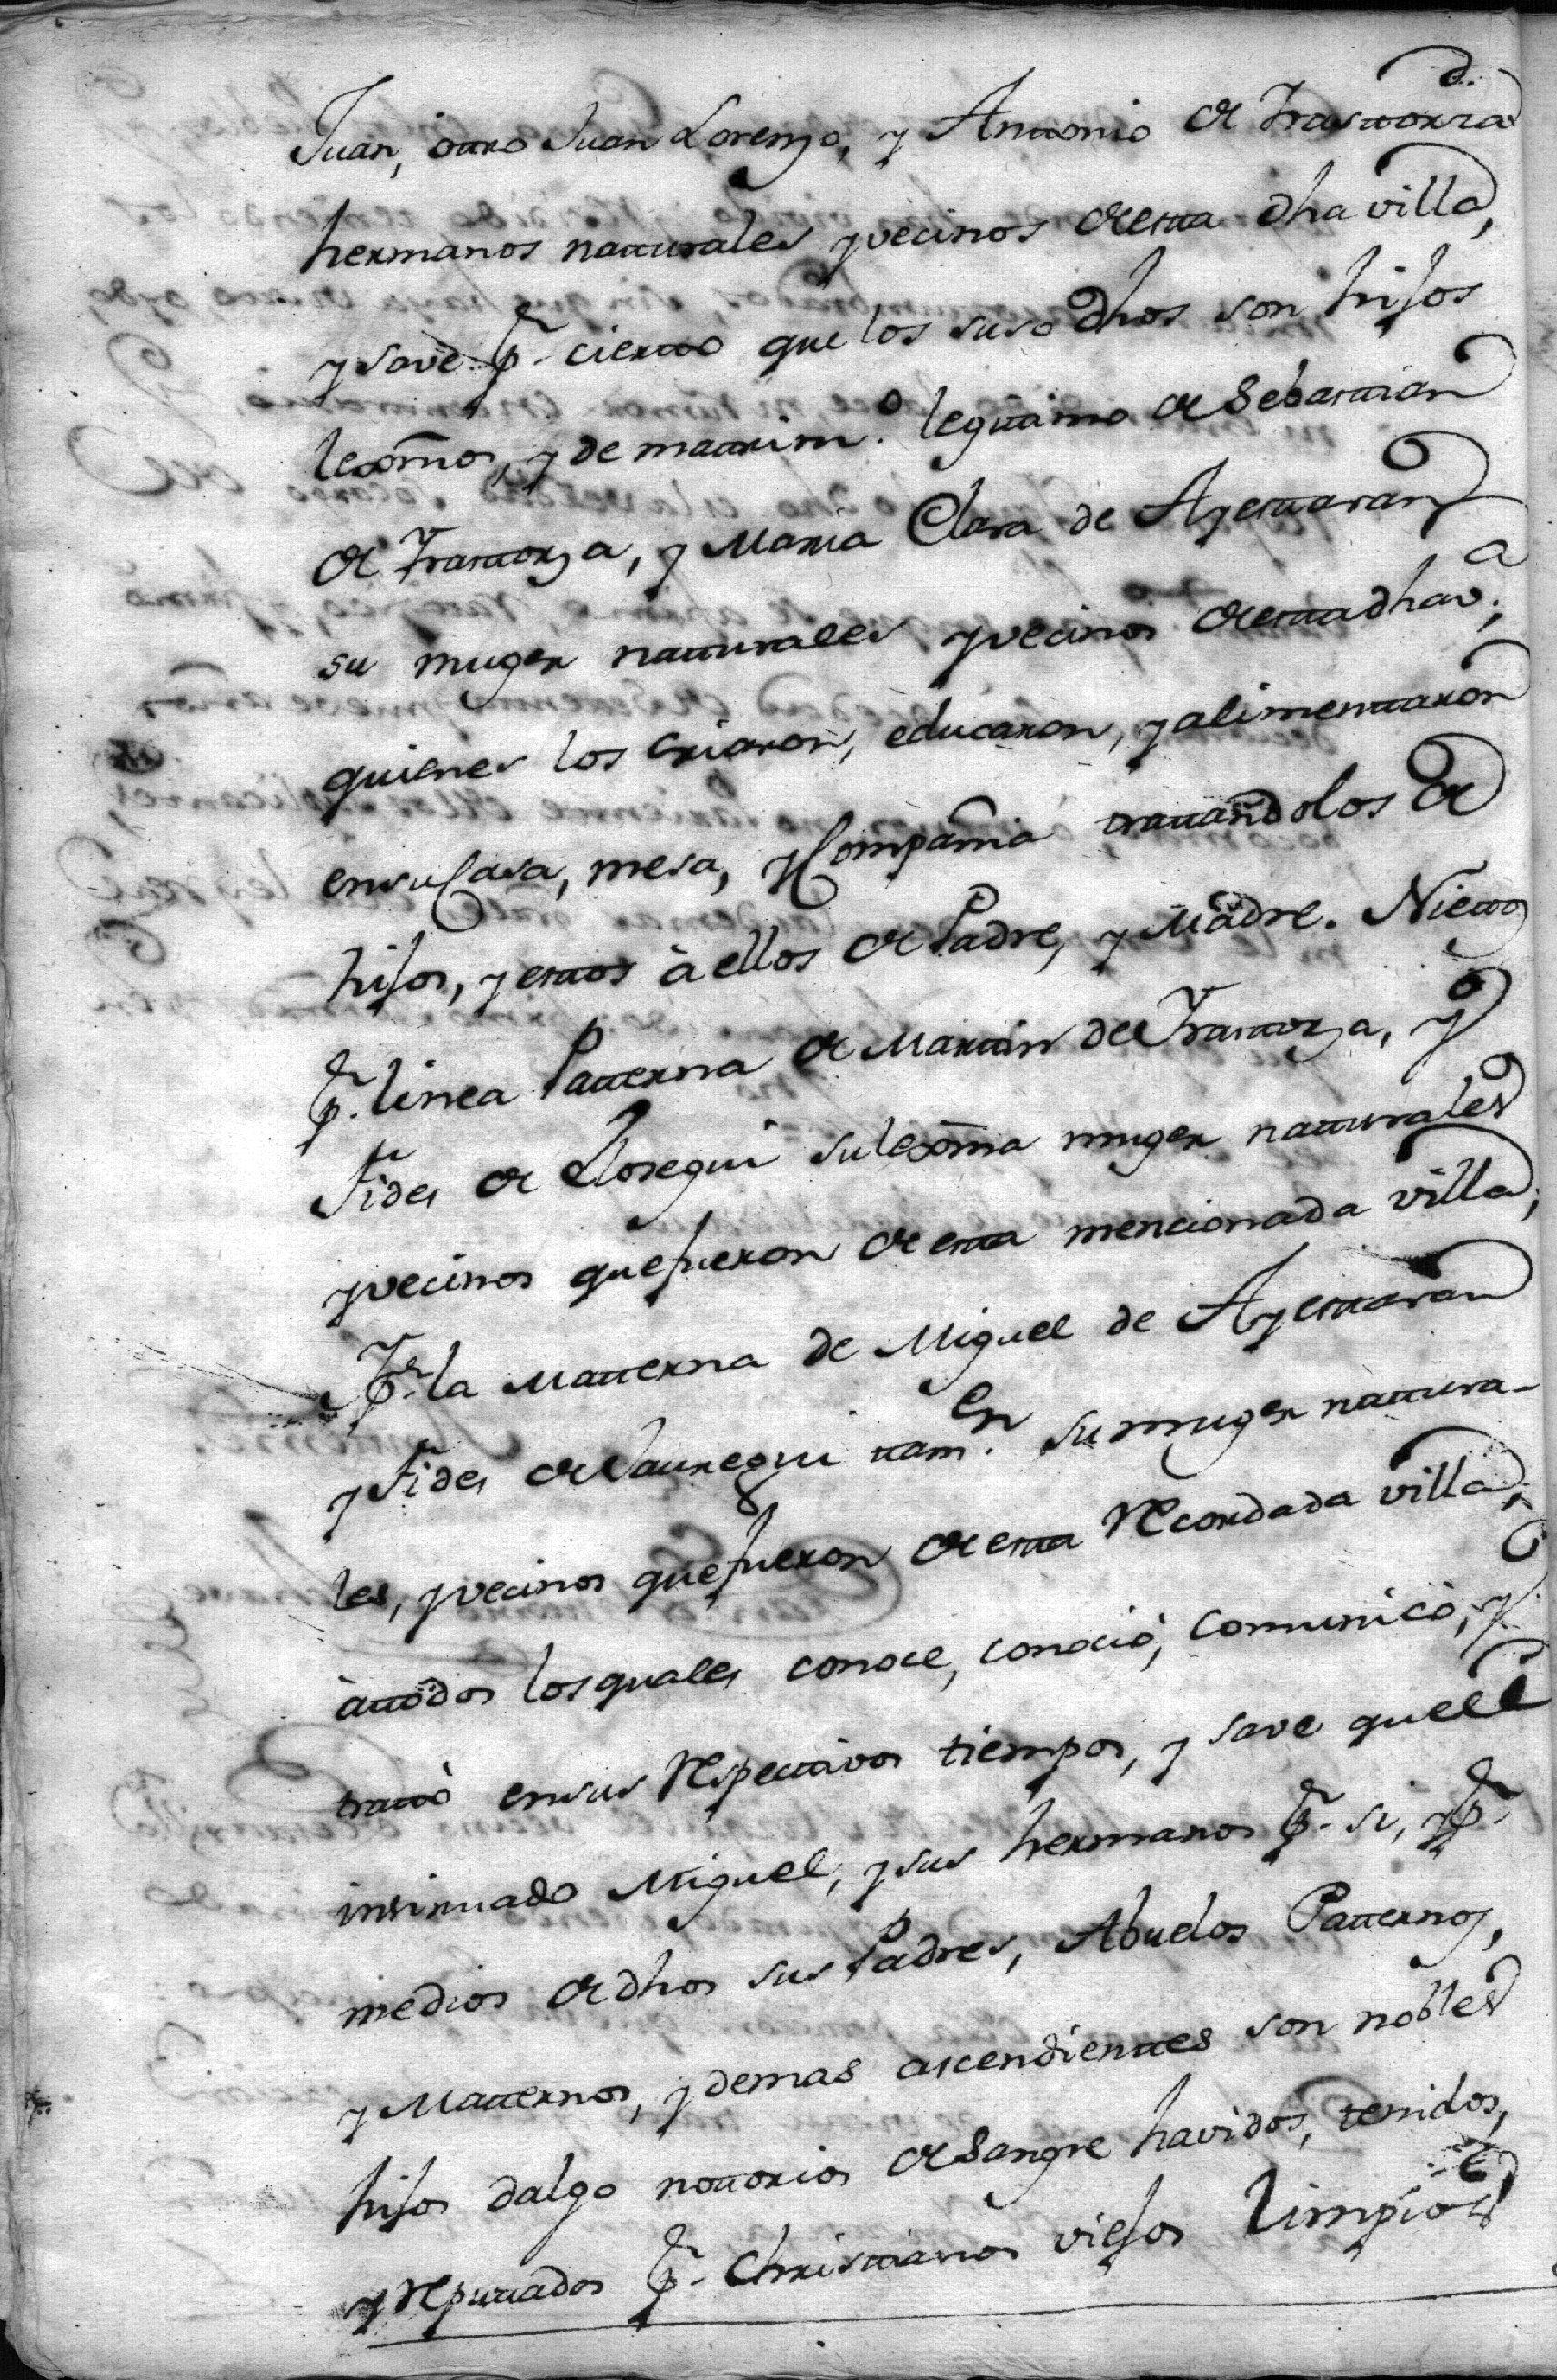 Juan, otro Juan Lorenzo, y Antonio de Trastorza
hermanos natturales y vecinos de esta dha villa,
y save pr. cierto que los suso dhos son hijos
lexmos, y de matrimo. legitimo de Sebastian
de Trastorza, y Maria Clara de Ayestaran
su muger natturales y vecinos de esta dha va;
quienes los criaron, educaron, y alimentaron
en su Casa, mesa, y Compañia trattandolos de
hijos, y estos à ellos de Padre, y Madre. Nietos
pr. linea Patterna de Martin de Trastorza, y
Fides de Elosegui su lexma muger natturales
y vecinos que fueron de esta mencionada villa;
Y pr. la Matterna de Miguel de Ayestaran
y Fides de Jauregui tamen. su muger nattura-
les, y vecinos que fueron de esta recordada villa,
à ttodos los quales conoce, conociò, comunicò, y
trattò en sus respectivos tiempos, y save que el
insinuado Miguel, y sus hermanos pr. si, y pr.
medios de dhos sus Padres, Abuelos Patternos,
y Matternos, y demas ascendientes son nobles
hijos dalgo nottorios de Sangre havidos, tenidos,
y reputtados pr. Christianos viejos limpios